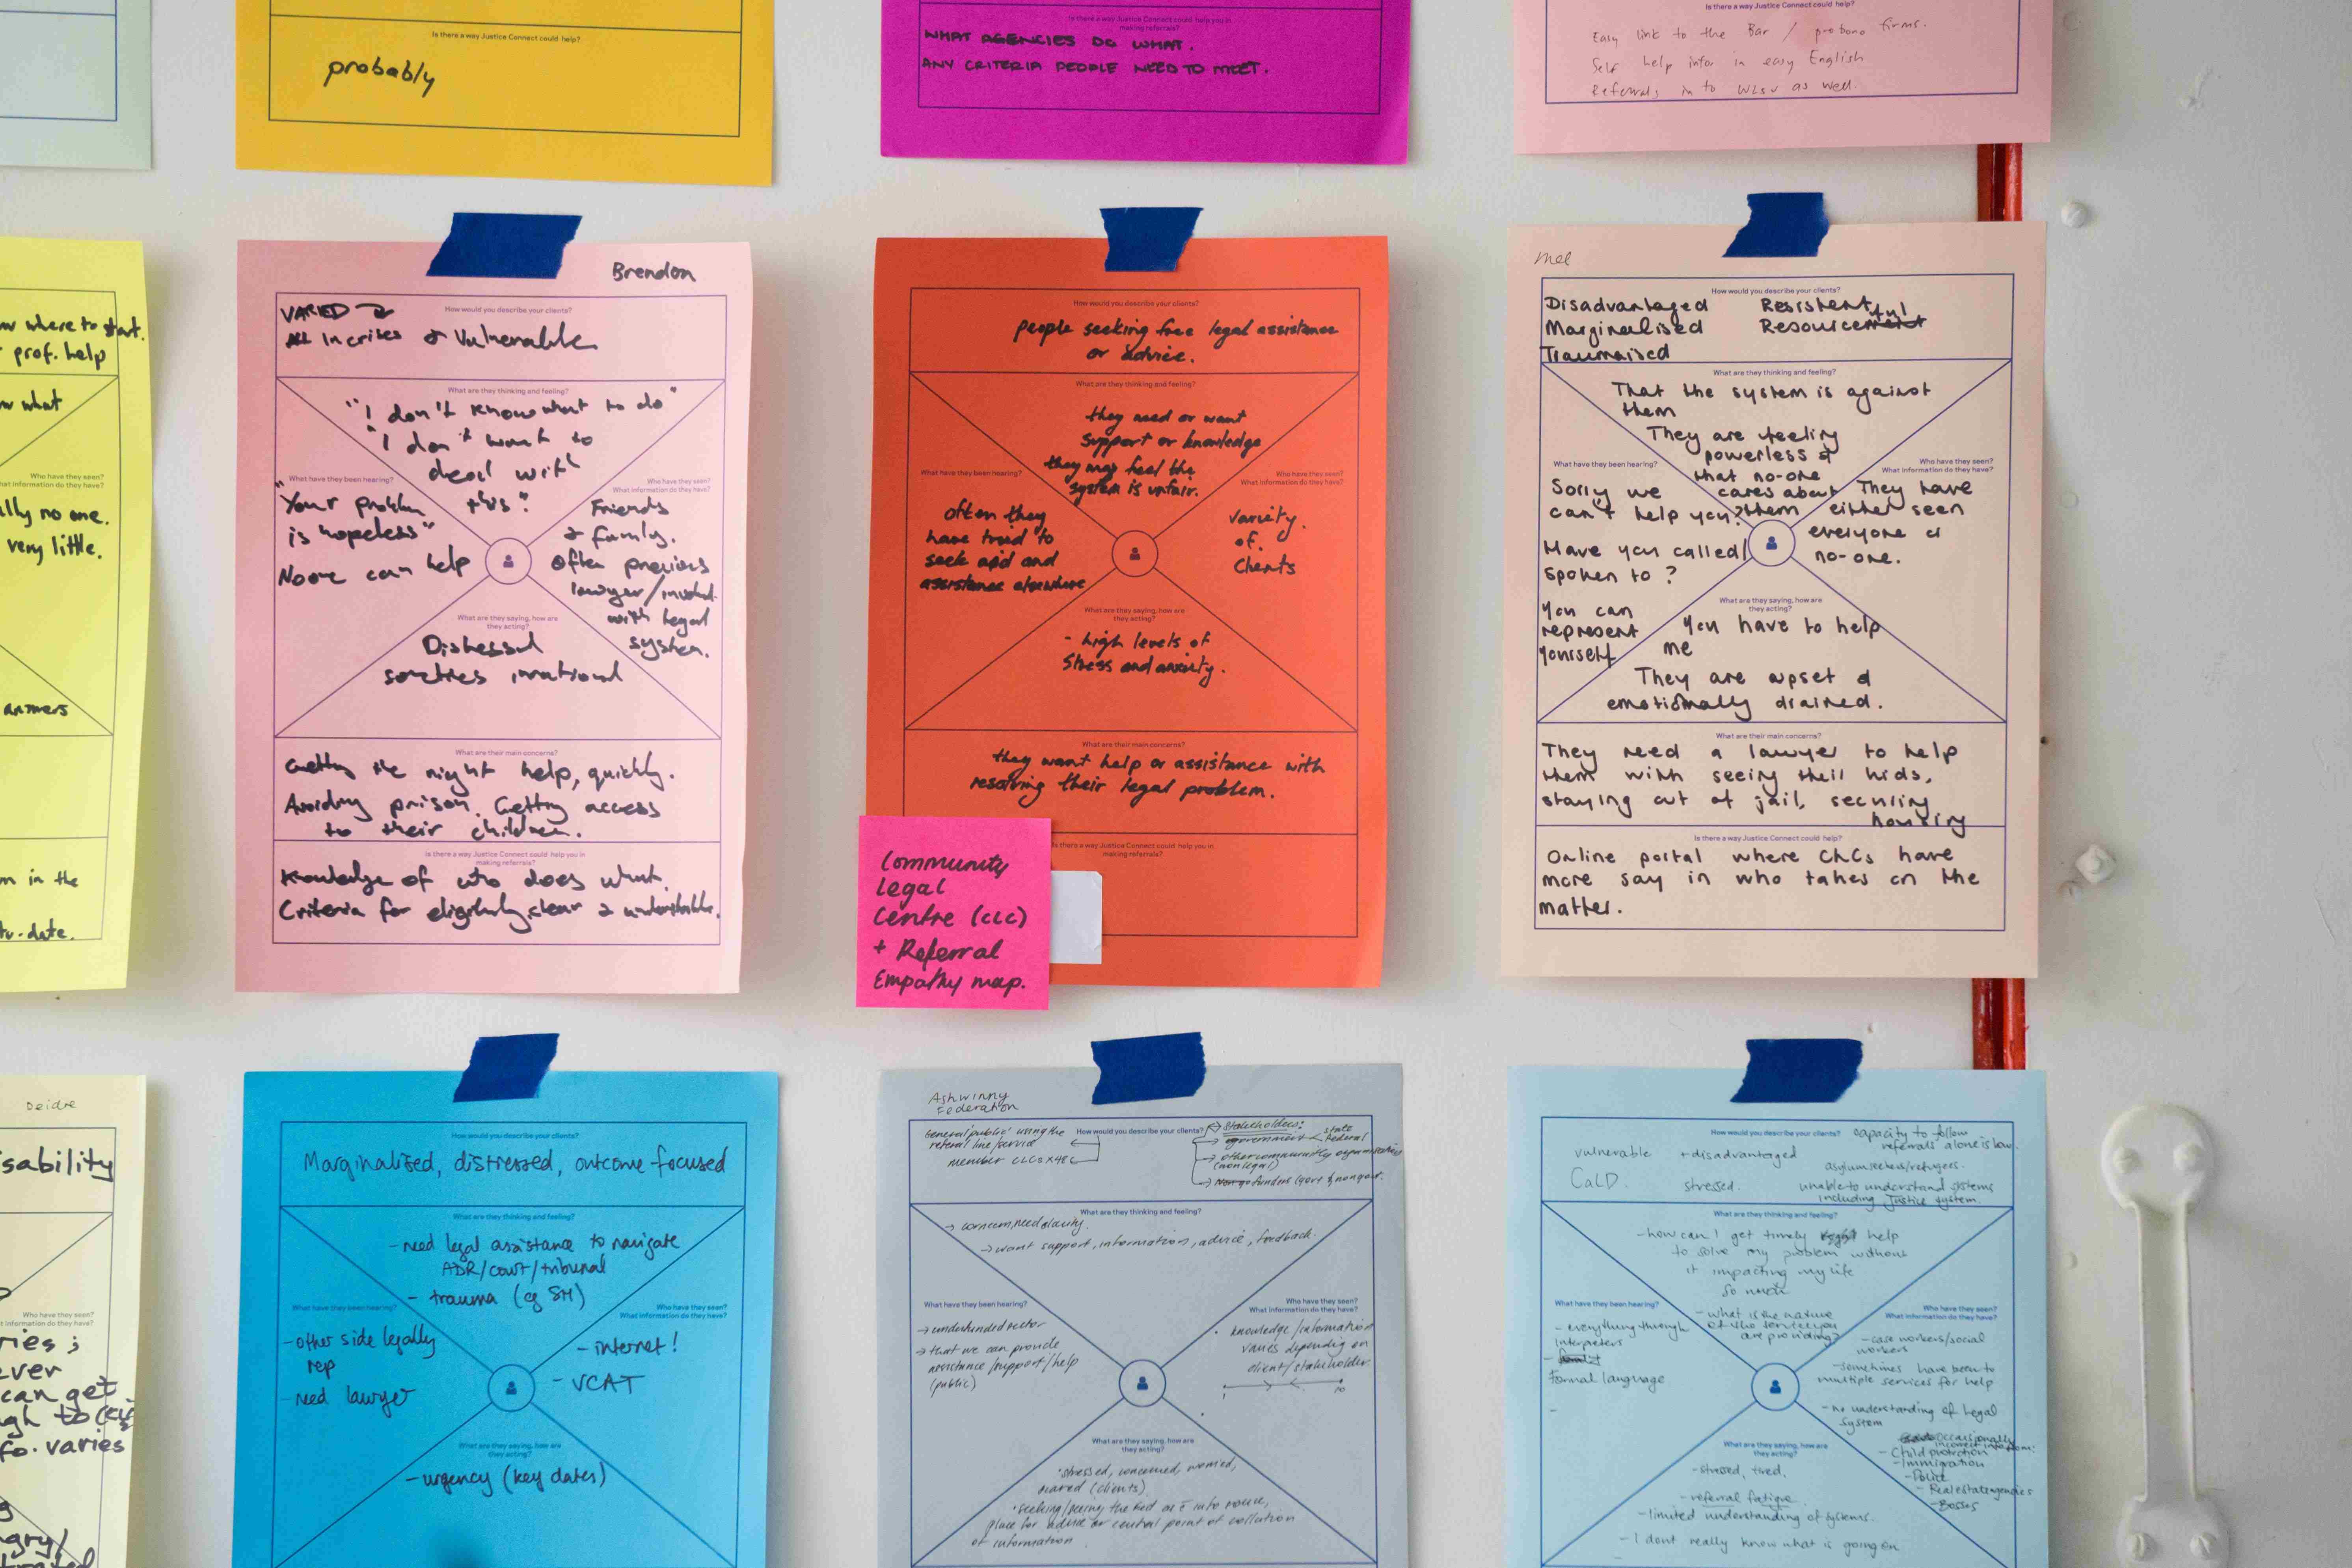 Is there a way Justice Connect could help?
probably
Is there a way Justice Connect could help you in
making referrals?
WHAT AGENCIES DO WHAT.
ANY CRITERIA PEOPLE NEED TO MEET.
Is there a way Justice Connect could help?
Easy link to the Bar / probono firms.
Self help infor in easy English
Referrals in to WLSV as well.
where to start.
prof. help
what
Who have they seen?
What information do they have?
no one.
very little.
answers
in the
Brendon
How would you describe your clients?
VARIED
In crises & Vulnerable
What are they thinking and feeling?
"I don't know what to do"
"I don't want to
deal with
this."
What have they been hearing?
"Your problem
is hopeless"
Noone can help
Who have they seen?
What information do they have?
Friends
& family.
Often previous
lawyer/involved
with legal
system.
What are they saying, how are
they acting?
Distressed
sometimes irrational
What are their main concerns?
Getting the right help, quickly.
Avoiding prison. Getting access
to their children.
Is there a way Justice Connect could help you in
making referrals?
Knowledge of who does what.
Criteria for eligibility, clear &
How would you describe your clients?
people seeking free legal assistance
or advice.
What are they thinking and feeling?
they need or want
support or knowledge
they may feel the
system is unfair.
What have they been hearing?
often they
have tried to
seek aid and
assistance elsewhere
Who have they seen?
What information do they have?
variety
of
clients
What are they saying, how are
they acting?
- high levels of
stress and anxiety.
What are their main concerns?
they want help or assistance with
resolving their legal problem.
Is there a way Justice Connect could help you in
making referrals?
Community
Legal
Centre (CLC)
+ Referral
Empathy map.
Mel
How would you describe your clients?
Disadvantaged Resistent
Marginalised Resourceful
Traumaised
What are they thinking and feeling?
That the system is against
them
They are feeling
powerless &
that no-one
cares about
them
What have they been hearing?
Sorry we
can't help you?
Have you called/
spoken to?
You can
represent
yourself
Who have they seen?
What information do they have?
They have
either seen
everyone or
no-one.
What are they saying, how are
they acting?
You have to help
me
They are upset &
emotionally drained.
What are their main concerns?
They need a lawyer to help
them with seeing their kids,
staying out of jail, securing
housing
Is there a way Justice Connect could help?
Online portal where CLCs have
more say in who takes on the
matter.
Deidre
Who have they seen?
What information do they have?
can get
varies
How would you describe your clients?
Marginalised, distressed, outcome focused
What are they thinking and feeling?
- need legal assistance to navigate
ADR/court/tribunal
- trauma (eg SH)
What have they been hearing?
- other side legally
rep
- need lawyer
Who have they seen?
What information do they have?
- internet!
- VCAT
What are they saying, how are
they acting?
- urgency (key dates)
Ashwinny
Federation
How would you describe your clients?
General public using the
referral line/service
member CLCs x48
Stakeholders:
government
state
federal
other community organisations
(non legal)
funders (govt & nongovt.
What are they thinking and feeling?
→ concern, need clarity.
→ want support, information, advice, feedback.
What have they been hearing?
→ underfunded sector
→ that we can provide
assistance/support/help
(public)
Who have they seen?
What information do they have?
knowledge/information
varies depending on
client/stakeholder.
1 10
What are they saying, how are
they acting?
• stressed, concerned, worried,
scared (clients)
place for advice or central point of collation
of information
How would you describe your clients?
capacity to follow
referrals alone is low.
vulnerable + disadvantaged
asylum seekers/refugees.
CaLD. stressed.
unable to understand systems
including Justice system.
What are they thinking and feeling?
- how can I get timely help
to solve my problem without
it impacting my life
so much
- what is the nature
of the service you
are providing?
What have they been hearing?
- everything through
interpreters
Formal language
Who have they seen?
What information do they have?
- case workers/social
workers
- sometimes have been to
multiple services for help
- no understanding of legal
system
occasionally
incorrect info from:
- Child protection
- Immigration
- Police
- Real estate agencies
- Bosses
What are they saying, how are
they acting?
- stressed, tired.
- referral fatigue.
- limited understanding of systems.
- I dont really know what is going on